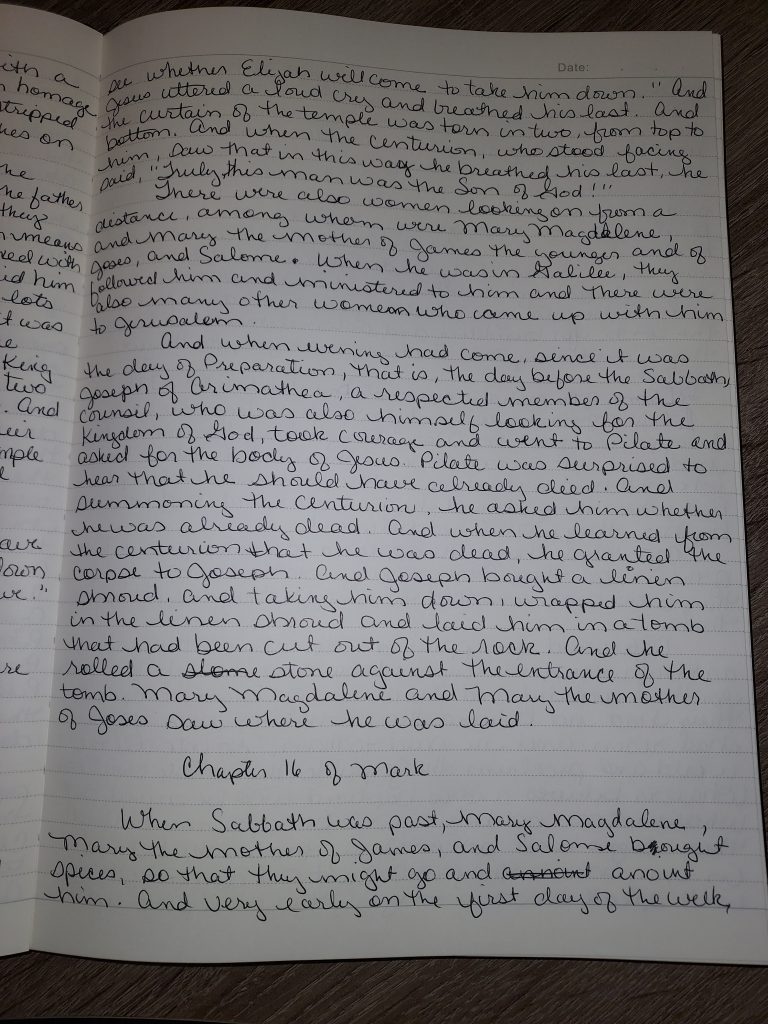 ith a
homage
tripped
hes on
he
he father
they
means
xed with
id him
lots
t was
e
King
two
. And
eir
mple
e
ave
down
ve."
re
Date:
see whether Elijah will come to take him down." And
Jesus uttered a loud cry and breathed his last. And
the curtain of the temple was torn in two, from top to
bottom. And when the centurion, who stood facing
him, saw that in this way he breathed his last, he
said, "Truly, this man was the Son of God!"
There were also women looking on from a
distance, among whom were Mary Magdalene,
and Mary the mother of James the younger and of
Joses, and Salome. When he was in Galilee, they
followed him and ministered to him and there were
also many other women who came up with him
to Jerusalem.
And when evening had come, since it was
the day of Preparation, that is, the day before the Sabbath,
Joseph of Arimathea, a respected member of the
council, who was also himself looking for the
Kingdom of God, took courage and went to Pilate and
asked for the body of Jesus. Pilate was surprised to
hear that he should have already died. And
summoning the centurion, he asked him whether
he was already dead. And when he learned from
the centurion that he was dead, he granted the
corpse to Joseph. And Joseph bought a linen
shroud, and taking him down, wrapped him
in the linen shroud and laid him in a tomb
that had been cut out of the rock. And he
rolled a stome stone against the entrance of the
tomb. Mary Magdalene and Mary the mother
of Joses saw where he was laid.
Chapter 16 of Mark
When Sabbath was past, Mary Magdalene,
Mary the mother of James, and Salome bought
spices, so that they might go and annoint anoint
him. And very early on the first day of the week,